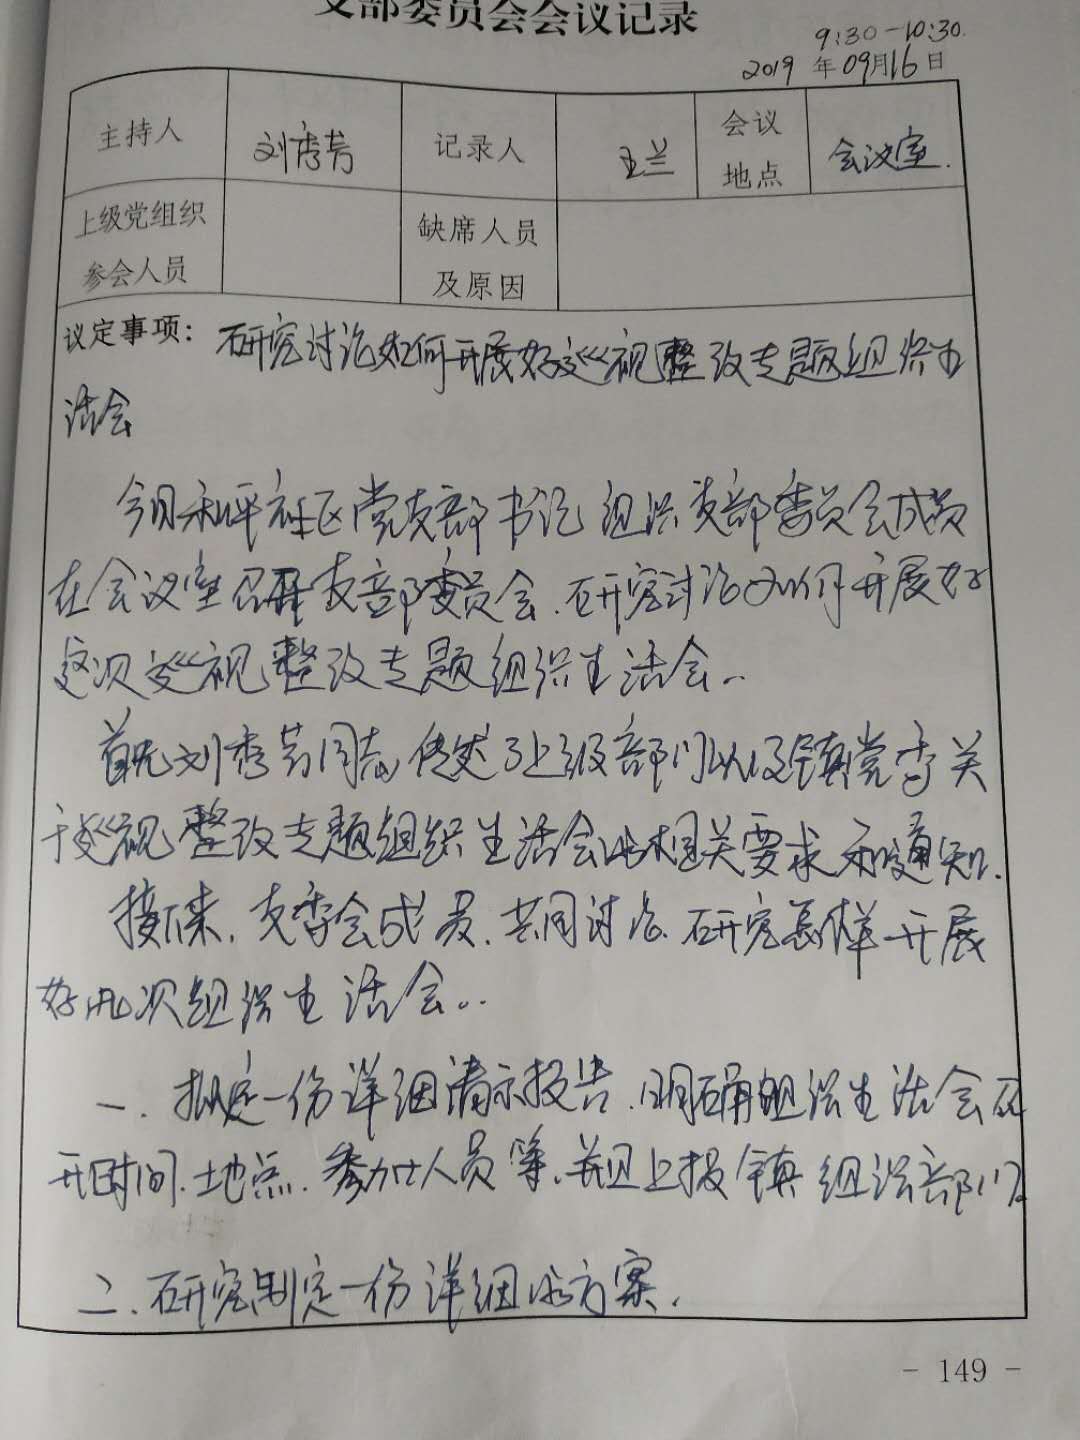 支部委员会会议记录
9:30-10:30.
2019年09月16日
主持人 刘秀芳 记录人 王兰 会议地点 会议室.
上级党组织参会人员 缺席人员及原因
议定事项: 研究讨论如何开展好巡视整改专题组织生
活会
今日和平社区党支部书记组织支部委员会成员
在会议室召开支部委员会.研究讨论如何开展好
这次巡视整改专题组织生活会..
首先刘秀芳同志传达了上级部门以及镇党委关
于巡视整改专题组织生活会的相关要求和通知.
接下来,支委会成员,共同讨论.研究怎样开展
好此次组织生活会..
一.拟定一份详细请示报告.明确组织生活会召
开时间.地点.参加人员等.并且上报镇组织部门
二.研究制定一份详细的方案.
- 149 -